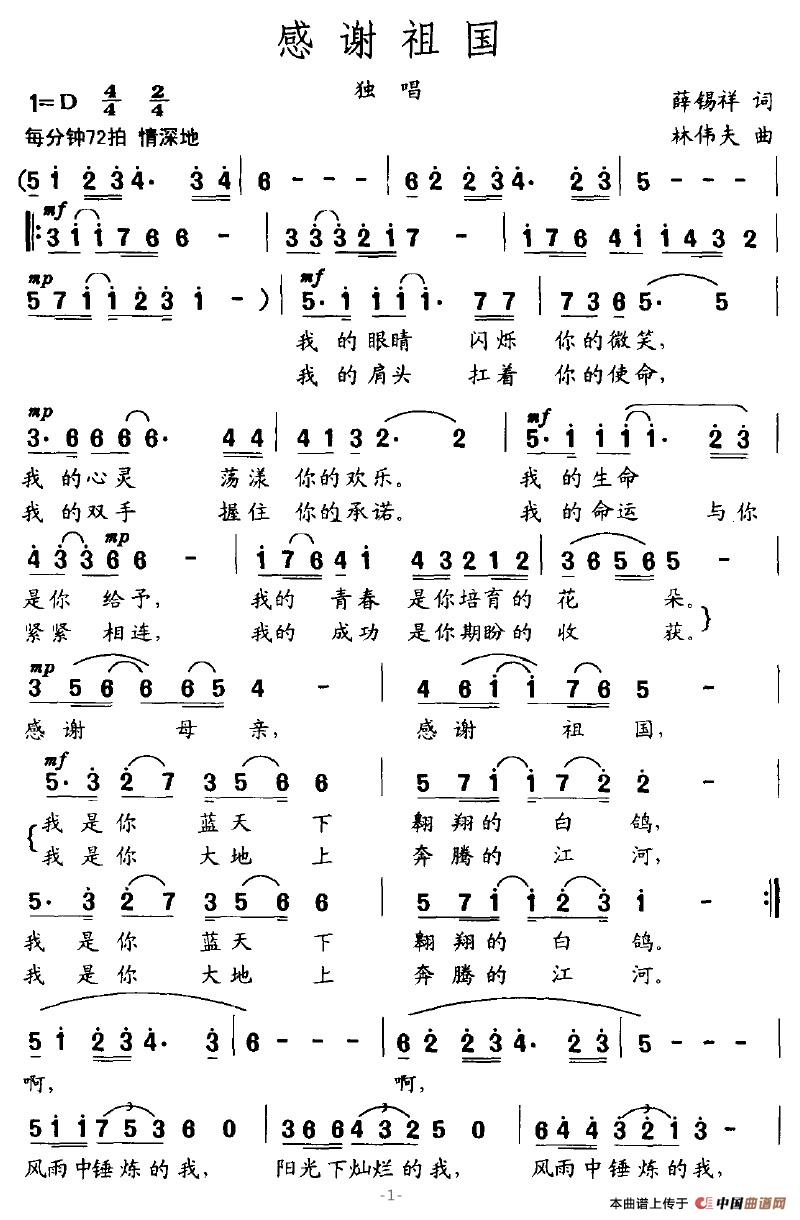 感谢祖国
独 唱
1=D 4/4 2/4
薛锡祥 词
每分钟72拍 情深地
林伟夫 曲
(5 1 2 3 4· 3 4 | 6 - - - | 6 2 2 3 4· 2 3 | 5 - - - |
mf
‖: 3 1 1 7 6 6 - | 3 3 3 2 1 7 - | 1 7 6 4 1 1 4 3 2 |
mp mf
5 7 1 1 2 3 1 - ) | 5· 1 1 1· 7 7 | 7 3 6 5· 5 |
我 的 眼睛 闪烁 你的微笑,
我 的 肩头 扛着 你的使命,
mp mf
3· 6 6 6 6· 4 4 | 4 1 3 2· 2 | 5· 1 1 1 1· 2 3 |
我 的心灵 荡漾 你的欢乐。 我 的生命
我 的双手 握住 你的承诺。 我 的命运 与你
mp
4 3 3 6 6 - | 1 7 6 4 1 4 3 2 1 2 | 3 6 5 6 5 - |
是你 给予, 我的 青春 是你培育的 花 朵。
紧紧 相连, 我的 成功 是你期盼的 收 获。
mp
3 5 6 6 6 5 4 - | 4 6 1 1 7 6 5 - |
感谢 母 亲, 感谢 祖 国,
mf
5· 3 2 7 3 5 6 6 | 5 7 1 1 7 2 2 - |
我 是 你 蓝天 下 翱翔的 白 鸽,
我 是 你 大地 上 奔腾的 江 河,
5· 3 2 7 3 5 6 6 | 5 7 1 1 2 3 1 - :‖
我 是 你 蓝天 下 翱翔的 白 鸽。
我 是 你 大地 上 奔腾的 江 河。
5 1 2 3 4· 3 | 6 - - - | 6 2 2 3 4· 3 | 5 - - - |
啊, 啊,
5 1 1 7 5 3 6 0 | 3 6 6 4 3 2 5 0 | 6 4 4 3 2 1 3 0 |
风雨中锤炼的我, 阳光下灿烂的我, 风雨中锤炼的我,
-1-
本曲谱上传于 中国曲谱网